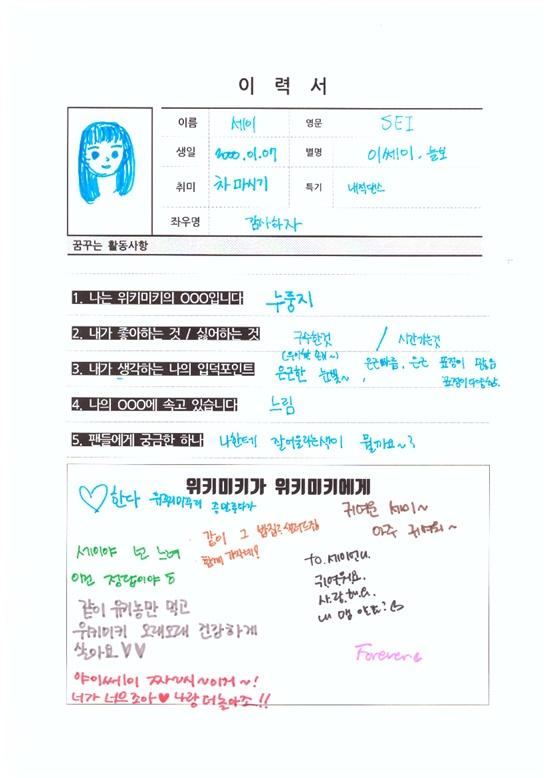 이력서
이름 세이 영문 SEI
생일 2000.01.07 별명 이쎄미, 늘보
취미 차 마시기 특기 내적댄스
좌우명 감사하자
꿈꾸는 활동사항
1. 나는 위키미키의 OOO입니다 누룽지
2. 내가 좋아하는 것 / 싫어하는 것 구수한것 / 시간가는것
3. 내가 생각하는 나의 입덕포인트 은근한 눈빛~, 은근빠름, 은근 표정이 많음
표정이다양해요
4. 나의 OOO에 속고 있습니다 느림
5. 팬들에게 궁금한 하나 나한테 잘어울리는색이 뭘까요~?
위키미키가 위키미키에게
♡한다
귀여운 세이~
아주 귀여워~
같이 그 밥집?
함께 가자네!
세이야 넌 느려
이건 정답이야
to. 세이언니
귀여워요.
사랑해요
같이 유기농만 먹고
위키미키 오래오래 건강하게
살아요♡♡
Forever
야이쎄이 짜~씨~이거~!
너가 너므조아♥ 나랑더놀아조!!